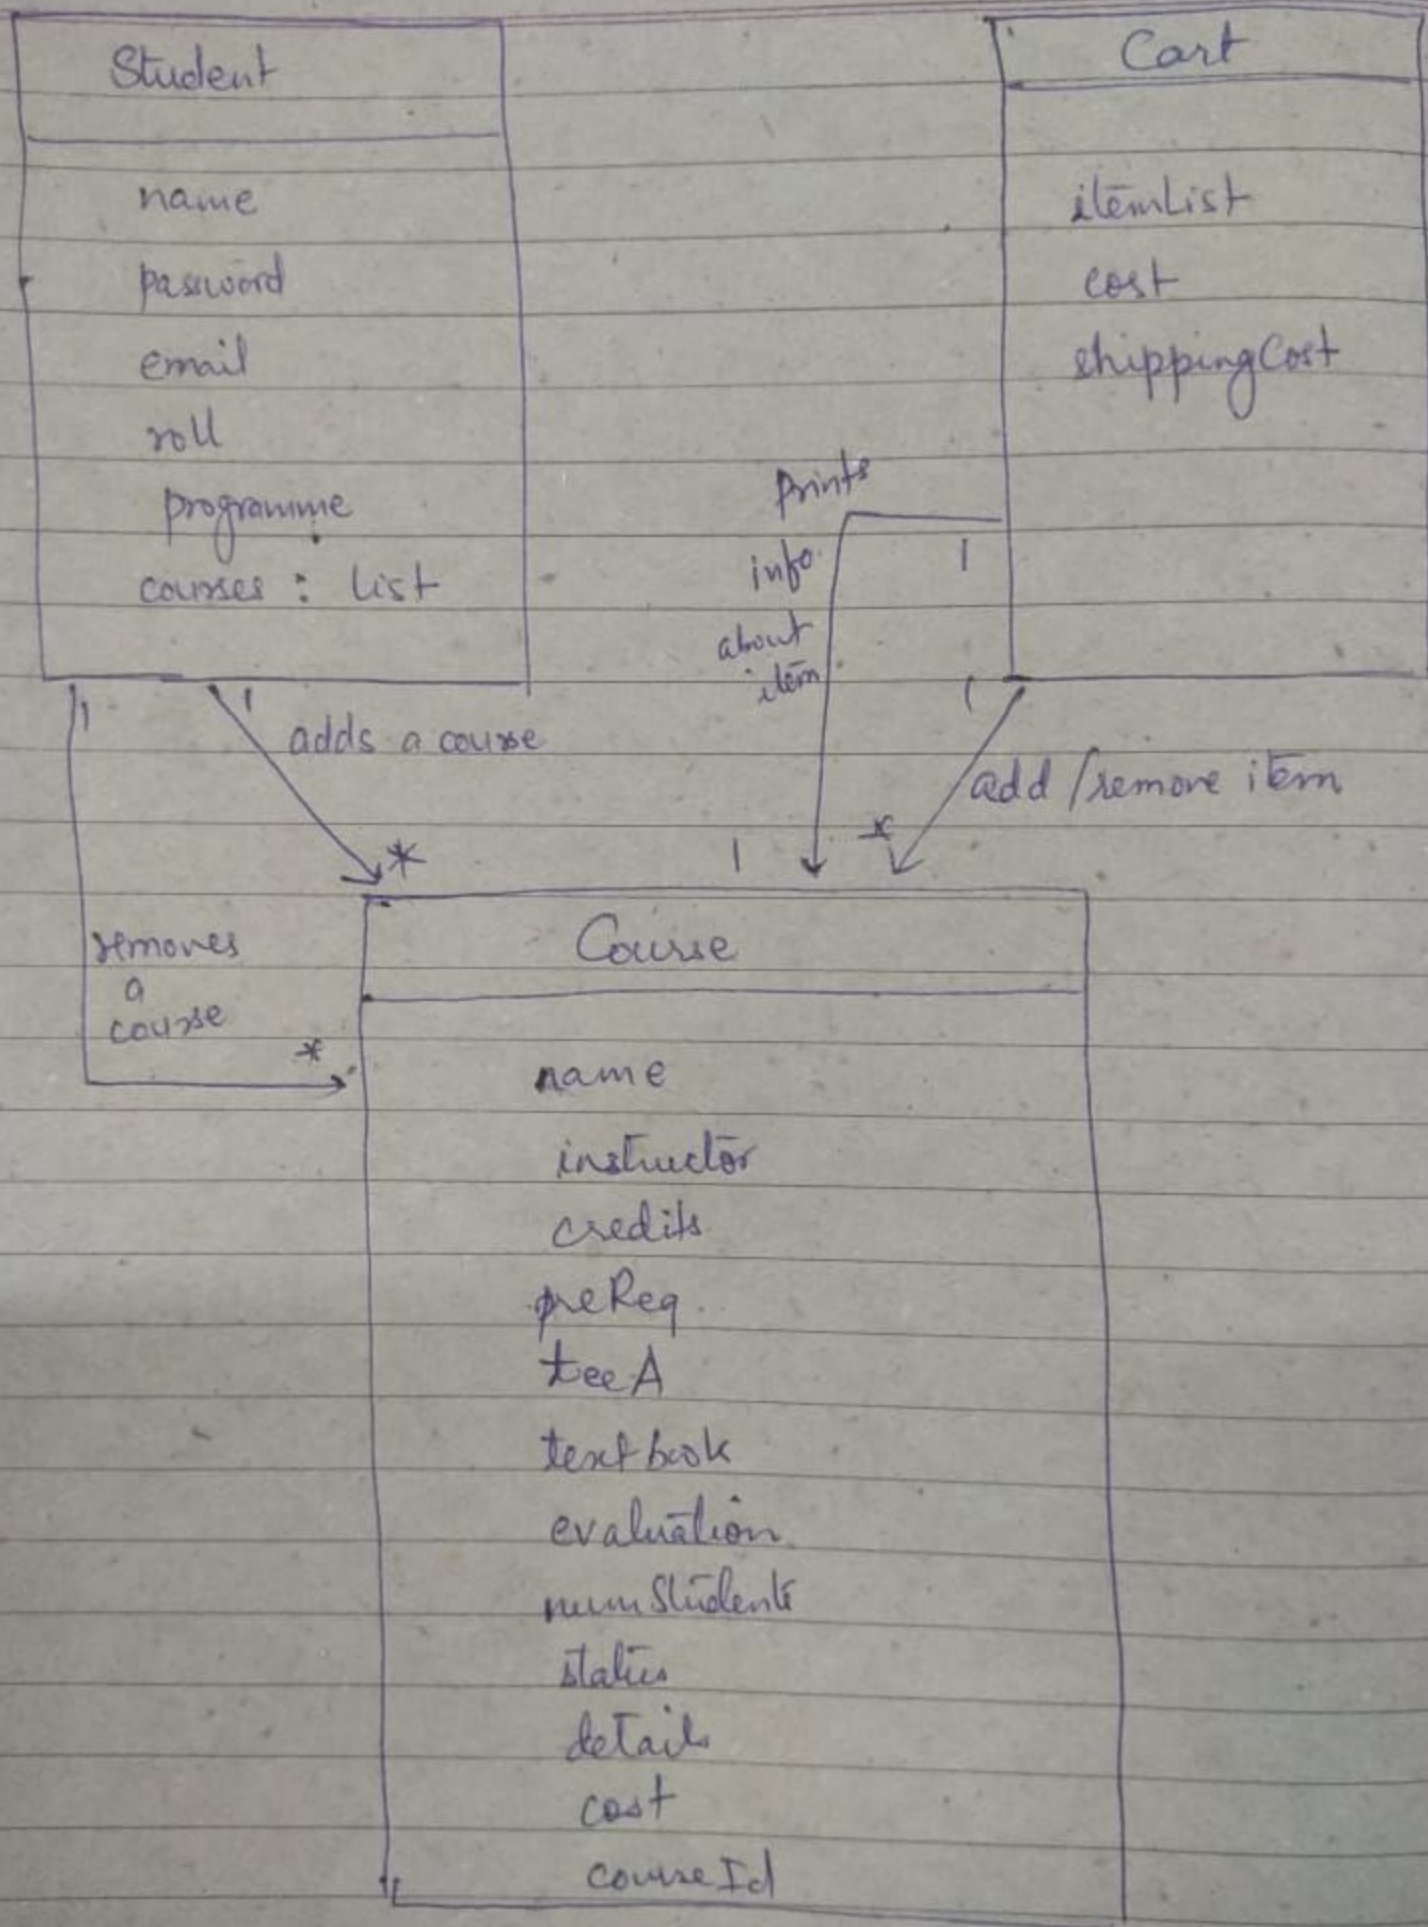 Student
name
password
email
roll
programme
courses : list
Cart
itemList
cost
shippingCost
prints
info
about
item
1
1
adds a course
*
1
removes
a
course
*
1
1
1
add/remove item
*
Course
name
instructor
credits
preReq
teeA
textbook
evaluation
numStudents
status
details
cost
courseId